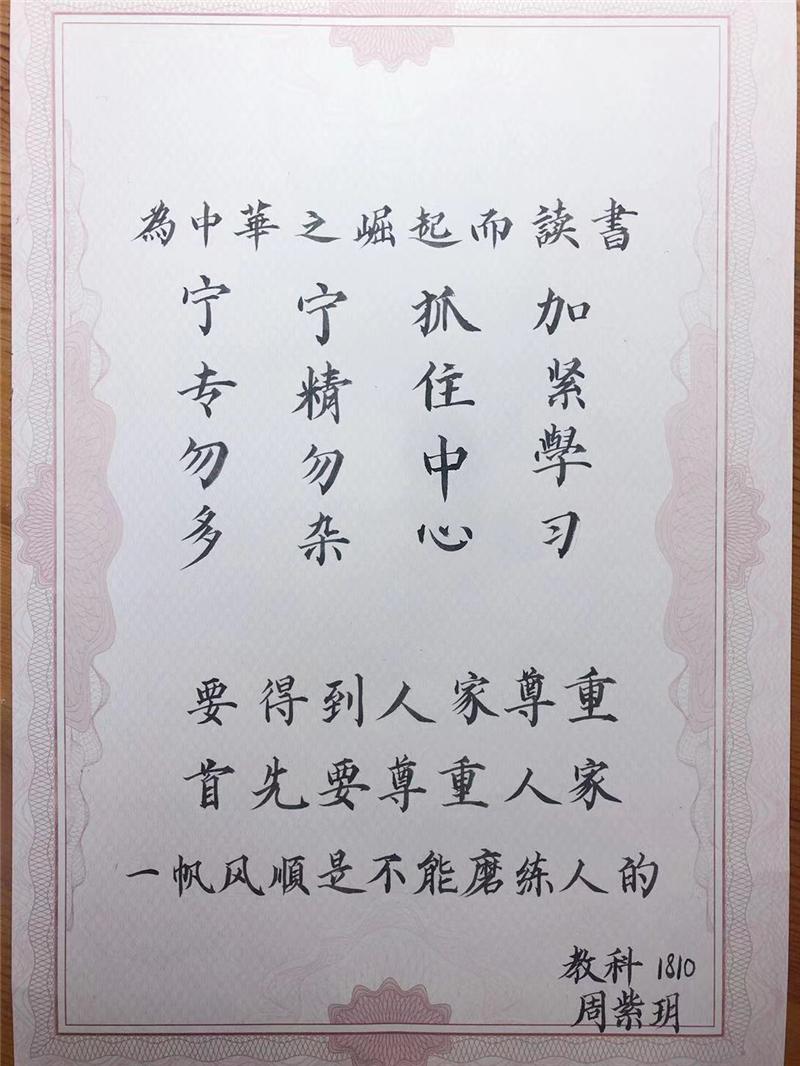 為中華之崛起而讀書
加紧學习
抓住中心
宁精勿杂
宁专勿多
要得到人家尊重
首先要尊重人家
一帆风順是不能磨练人的
教科 1810
周紫玥